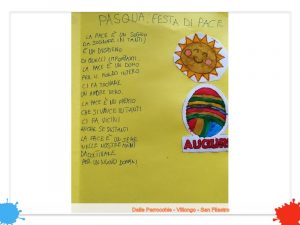 PASQUA: FESTA DI PACE
LA PACE È UN SOGNO
DA SOGNARE IN TANTI
È UN DISEGNO
DI QUELLI IMPORTANTI
LA PACE È UN DONO
PER IL MONDO INTERO
CI FA TROVARE
UN AMORE VERO.
LA PACE È UN PREMIO
CHE SI VINCE IN TANTI
CI FA VICINI
ANCHE SE DISTANTI
LA PACE È UN SEME
NELLE NOSTRE MANI
DA COLTIVARE
PER UN NUOVO DOMANI
Dalle Parrocchie - Villongo - San Filastro